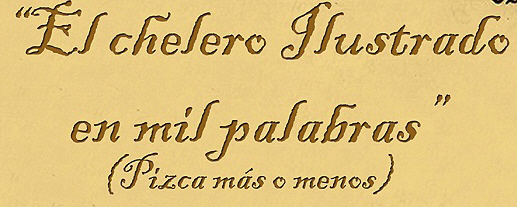 “El chelero Ilustrado
en mil palabras”
(Pizca más o menos)